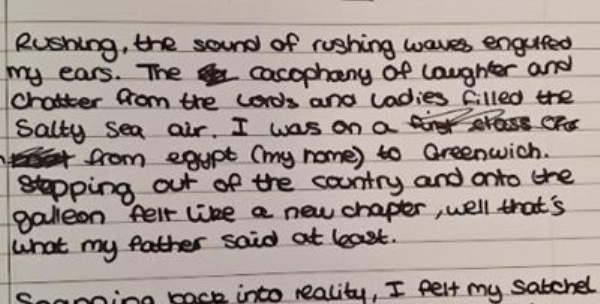 Rushing, the sound of rushing waves engulfed
my ears. The cacophany of laughter and
chatter from the Lords and Ladies filled the
Salty sea air. I was on a first class
from egypt (my name) to Greenwich.
Stepping out of the country and onto the
galleon felt like a new chapter, well that's
what my father said at least.
Snapping back into reality, I felt my satchel